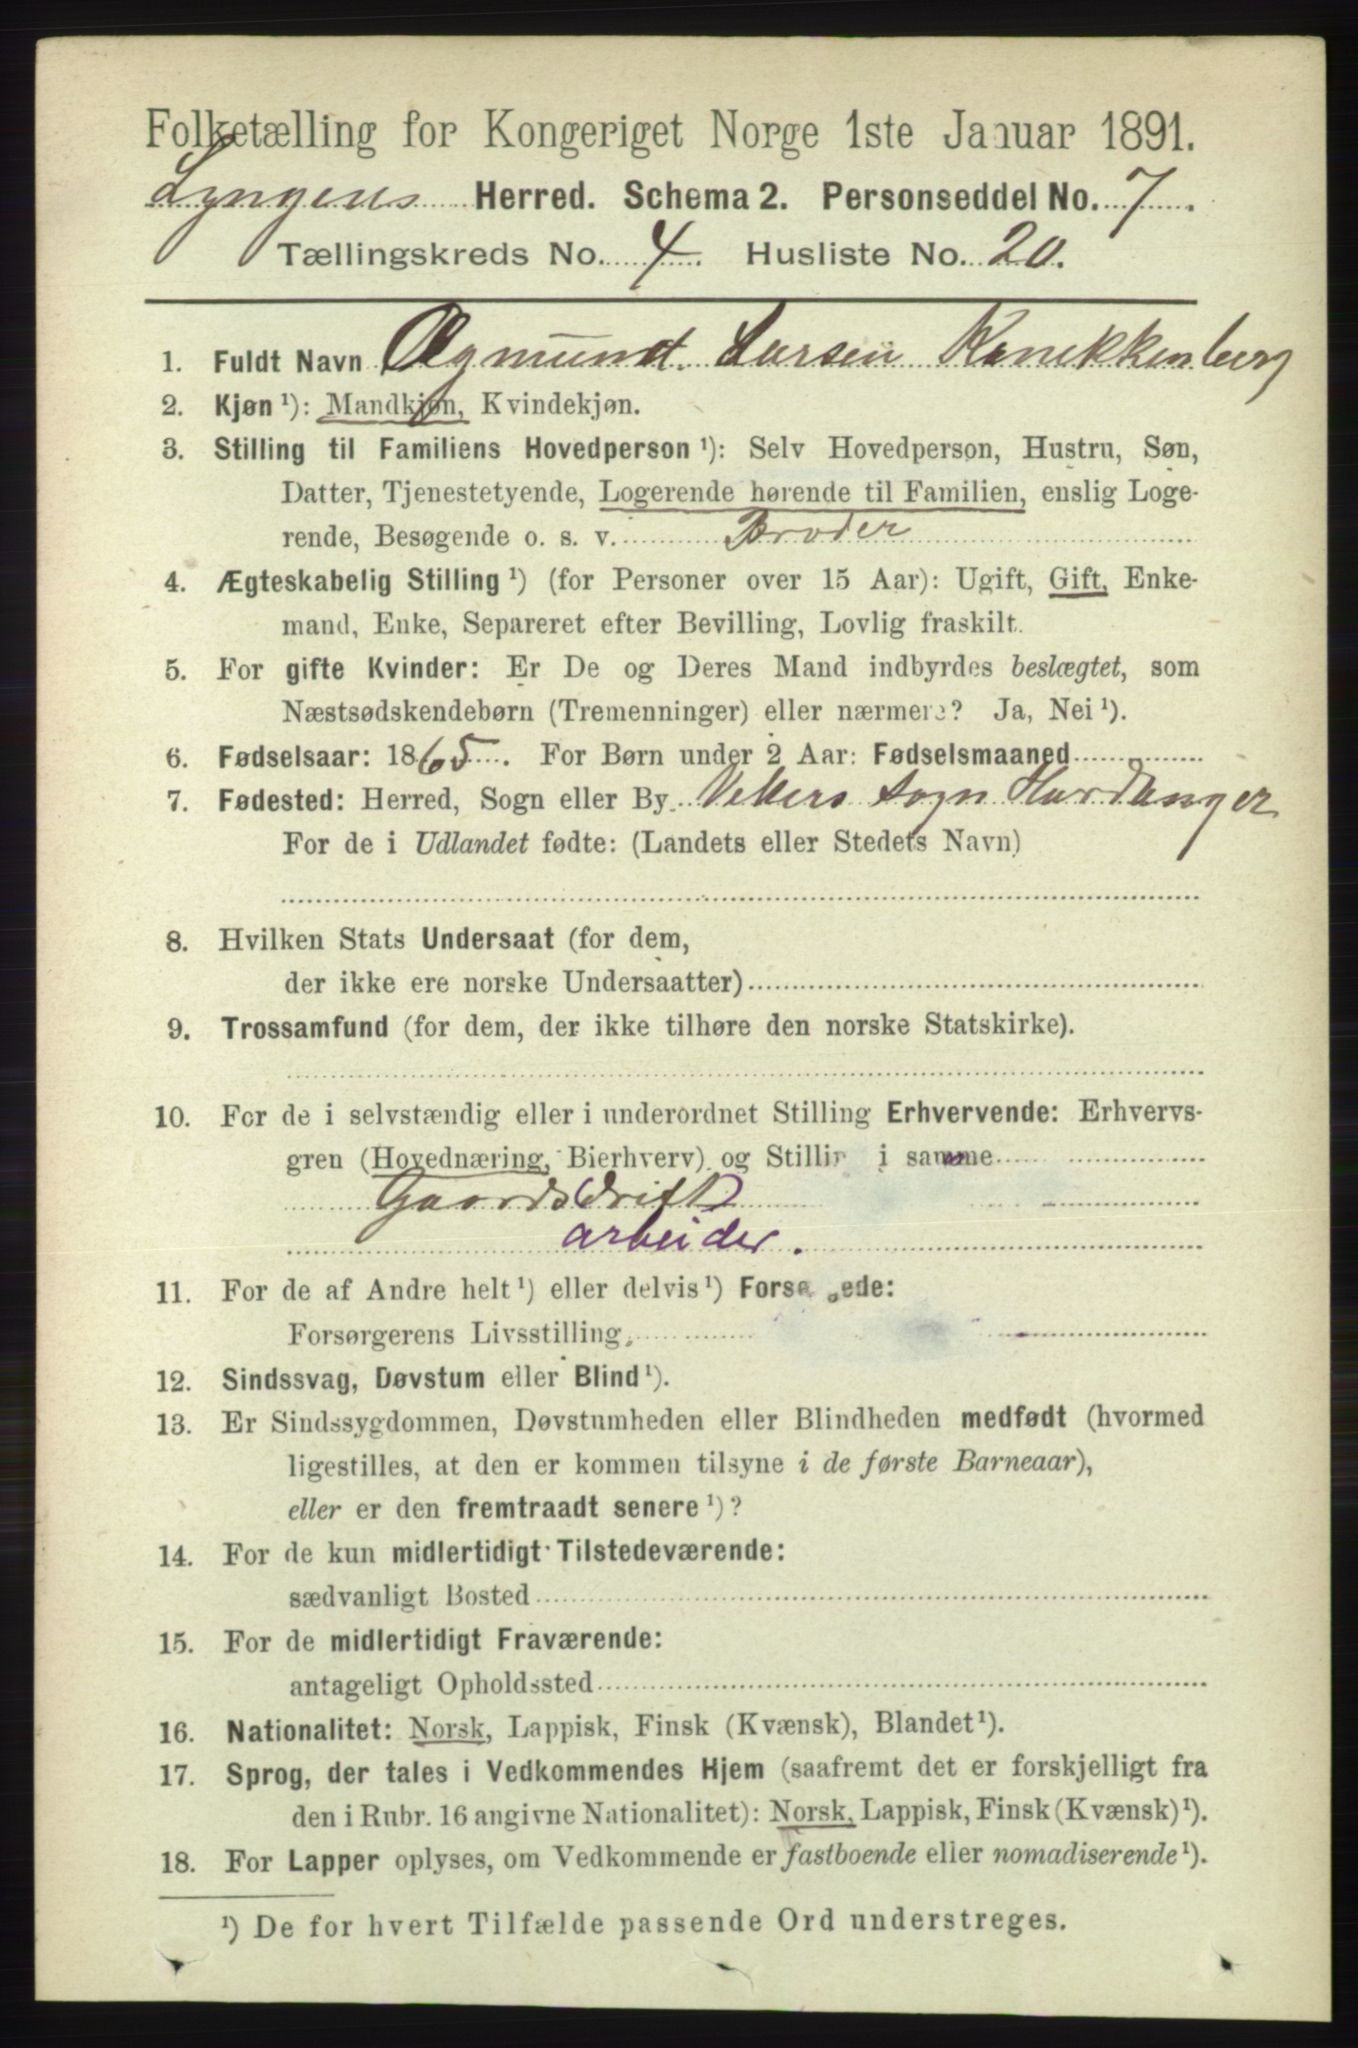 Folketælling for Kongeriget Norge 1ste Januar 1891.
Lyngens Herred. Schema 2. Personseddel No. 7.
Tællingskreds No. 4. Husliste No. 20.
1. Fuldt Navn Agmund Larsen
2. Kjøn ¹): Mandkjøn, Kvindekjøn.
3. Stilling til Familiens Hovedperson ¹): Selv Hovedperson, Hustru, Søn,
Datter, Tjenestetyende, Logerende hørende til Familien, enslig Loge-
rende, Besøgende o. s. v. Broder
4. Ægteskabelig Stilling ¹) (for Personer over 15 Aar): Ugift, Gift, Enke-
mand, Enke, Separeret efter Bevilling, Lovlig fraskilt.
5. For gifte Kvinder: Er De og Deres Mand indbyrdes beslægtet, som
Næstsødskendebørn (Tremenninger) eller nærmere? Ja, Nei ¹).
6. Fødselsaar: 1865. For Børn under 2 Aar: Fødselsmaaned
7. Fødested: Herred, Sogn eller By sogn Hardanger
For de i Udlandet fødte: (Landets eller Stedets Navn)
8. Hvilken Stats Undersaat (for dem,
der ikke ere norske Undersaatter)
9. Trossamfund (for dem, der ikke tilhøre den norske Statskirke).
10. For de i selvstændig eller i underordnet Stilling Erhvervende: Erhvervs-
gren (Hovednæring, Bierhverv) og Stillin i samme
Gaardsdrift
arbeider.
11. For de af Andre helt ¹) eller delvis ¹) Forsø ede:
Forsørgerens Livsstilling
12. Sindssvag, Døvstum eller Blind ¹).
13. Er Sindssygdommen, Døvstumheden eller Blindheden medfødt (hvormed
ligestilles, at den er kommen tilsyne i de første Barneaar),
eller er den fremtraadt senere ¹)?
14. For de kun midlertidigt Tilstedeværende:
sædvanligt Bosted
15. For de midlertidigt Fraværende:
antageligt Opholdssted
16. Nationalitet: Norsk, Lappisk, Finsk (Kvænsk), Blandet ¹).
17. Sprog, der tales i Vedkommendes Hjem (saafremt det er forskjelligt fra
den i Rubr. 16 angivne Nationalitet): Norsk, Lappisk, Finsk (Kvænsk) ¹).
18. For Lapper oplyses, om Vedkommende er fastboende eller nomadiserende ¹).
¹) De for hvert Tilfælde passende Ord understreges.